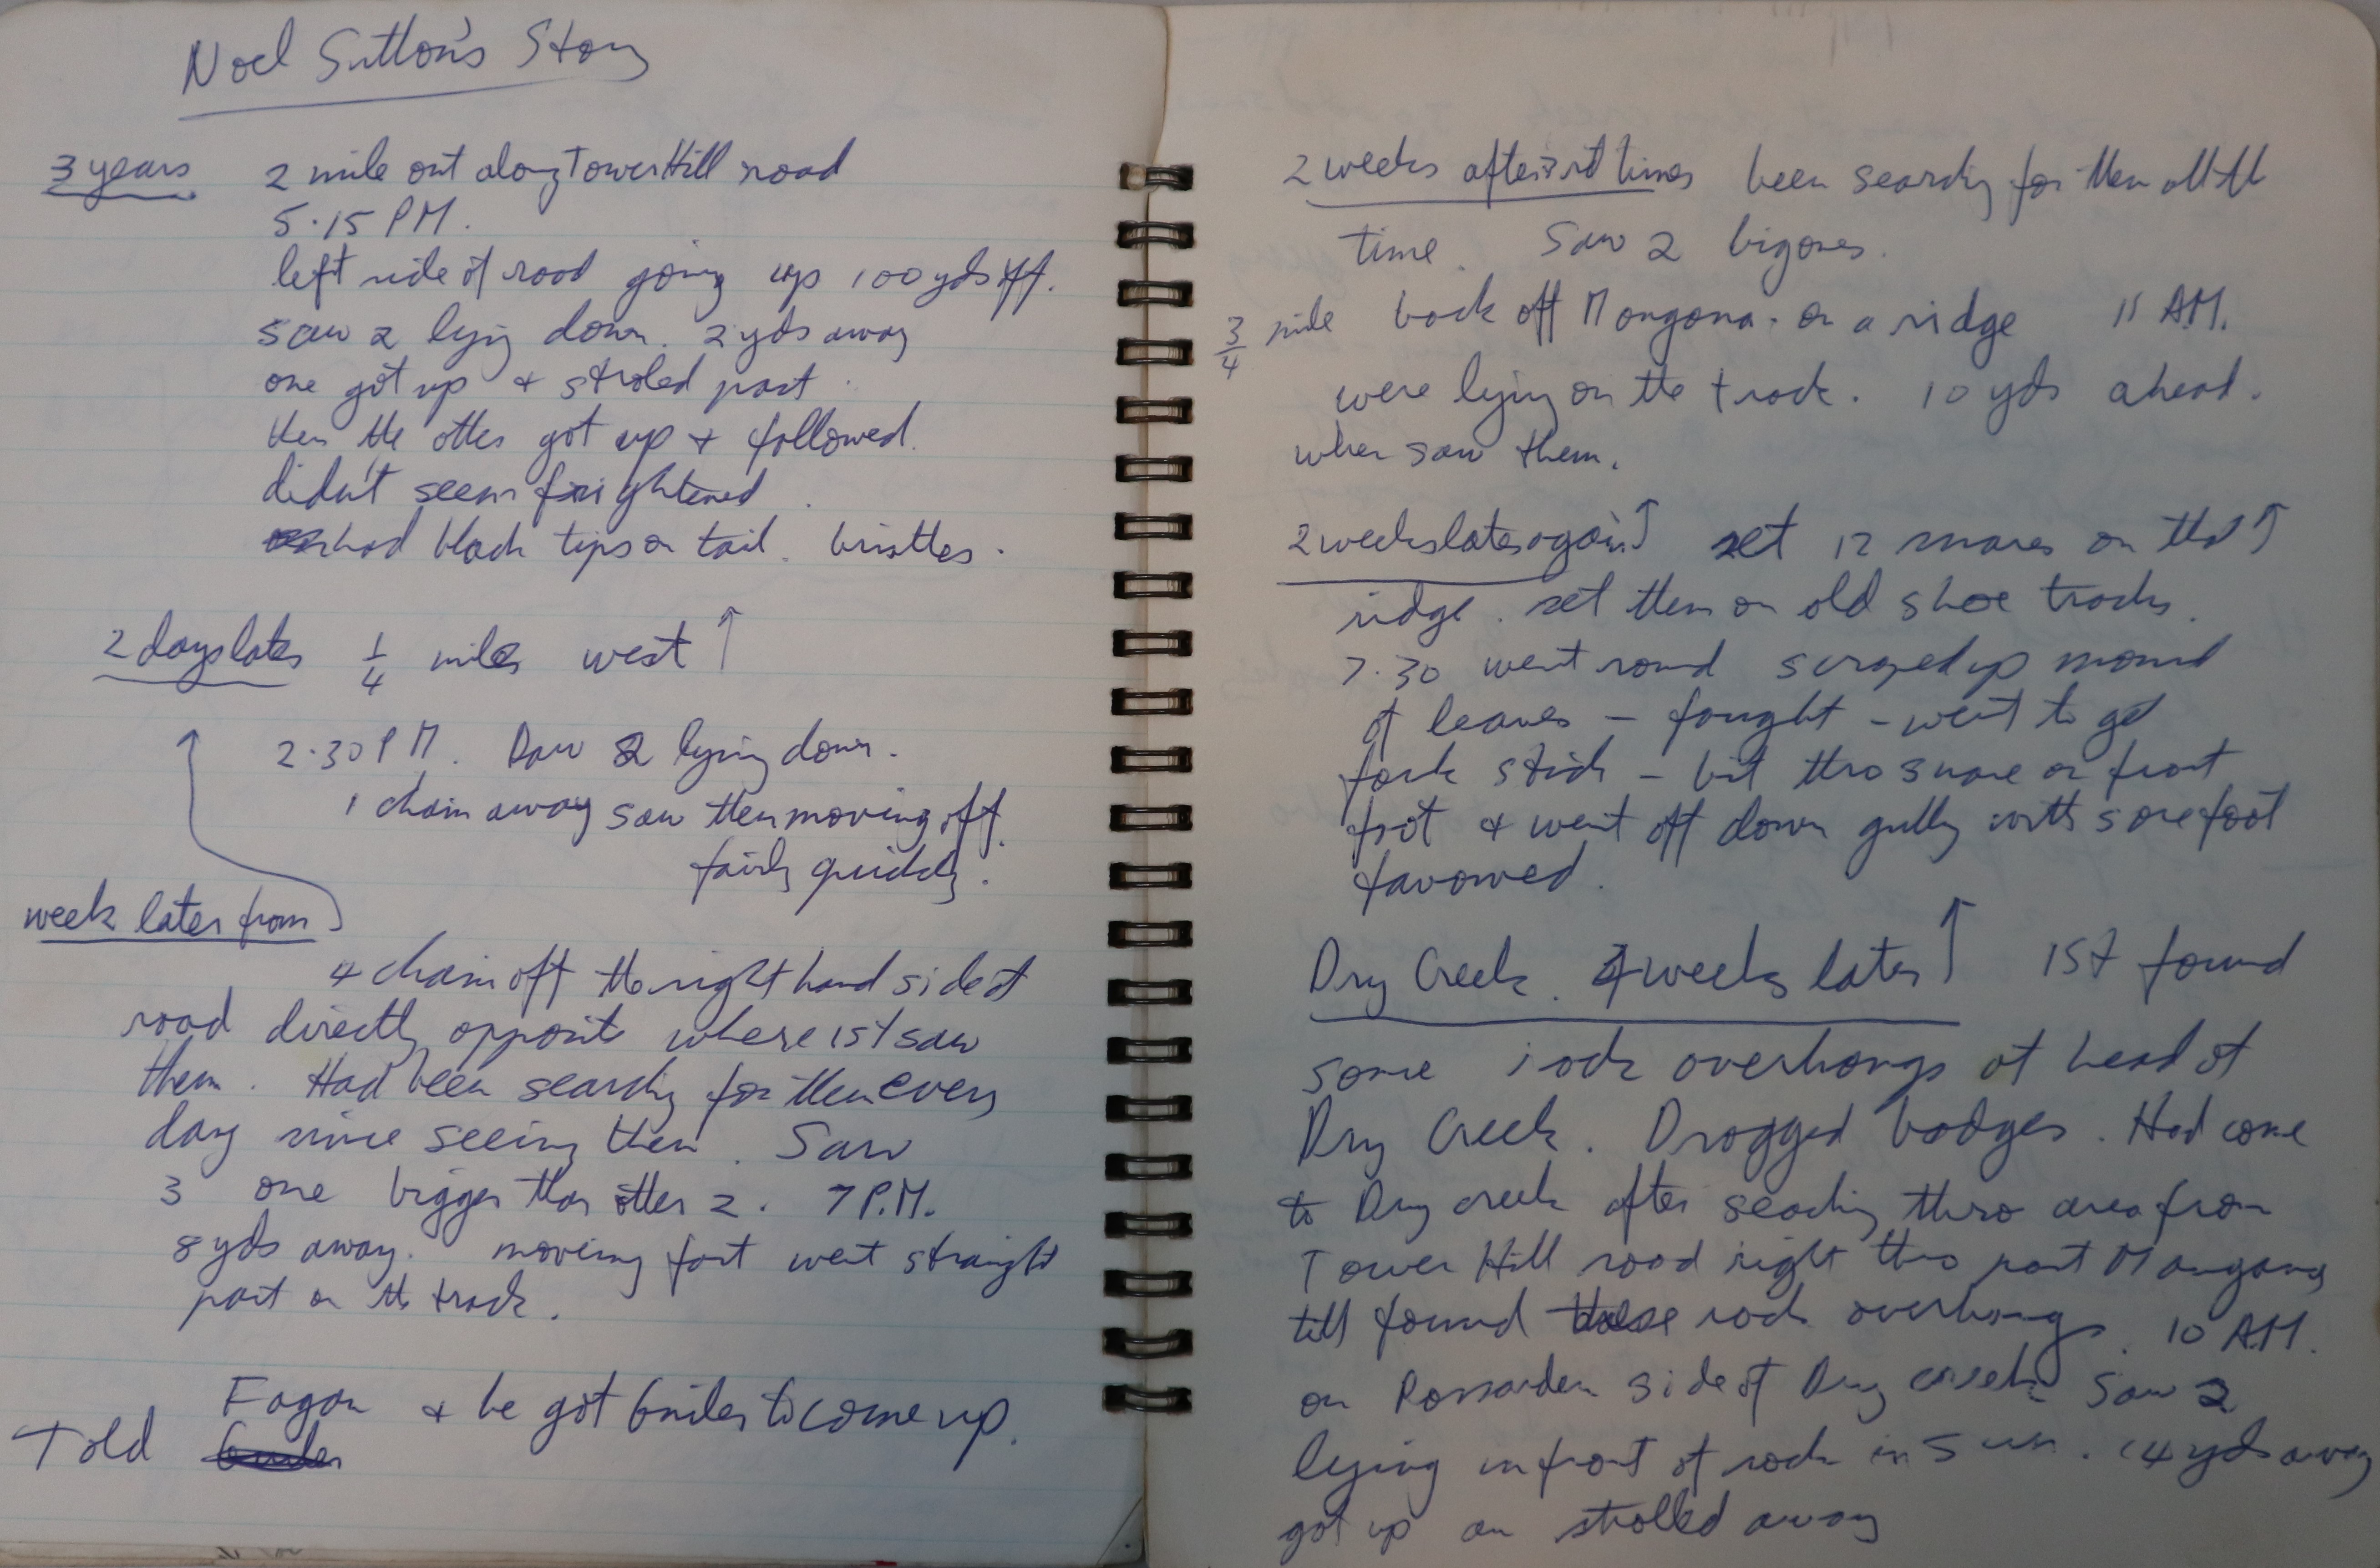 Noel Sutton's Story
3 years 2 mile out along Tower Hill road
5.15 PM.
left side of road going up 100 yds off.
saw 2 lying down. 2 yds away
one got up + stroled past.
then the other got up + followed.
didn't seem frightened.
had black tips on tail. bristles.
2 days later 1/4 miles west ↑
2.30 PM. Saw 2 lying down.
1 chain away saw them moving off.
fairly quickly.
week later from
4 chain off the right hand side of
road directly opposite where 1st saw
them. Had been searching for them every
day since seeing them. Saw
3 one bigger than other 2. 7 P.M.
8 yds away. moving fast went straight
past on the track.
Told Fagan + he got Guiler to come up.
Guiler
2 weeks after 3rd times been searching for them all the
time. Saw 2 big ones.
3/4 mile back off Mangana. on a ridge 11 AM.
were lying on the track. 10 yds ahead.
when saw them.
2 weeks later again ↑ set 12 snares on that ↑
ridge. set them on old shoe tracks.
7.30 went round scraped up mound
of leaves - fought - went to get
fork stick - bit thro snare on front
foot + went off down gully with sore foot
favoured.
Dry Creek. 4 weeks later ↑ 1st found
some rock overhangs at head of
Dry Creek. Drogged badges. Had come
to Dry creek after seaching thro area from
Tower Hill road right thro past Mangana
till found these rock overhangs. 10 AM.
on Rossarden side of Dry creek saw 2
lying in front of rock in sun. 14 yds away
got up an strolled away